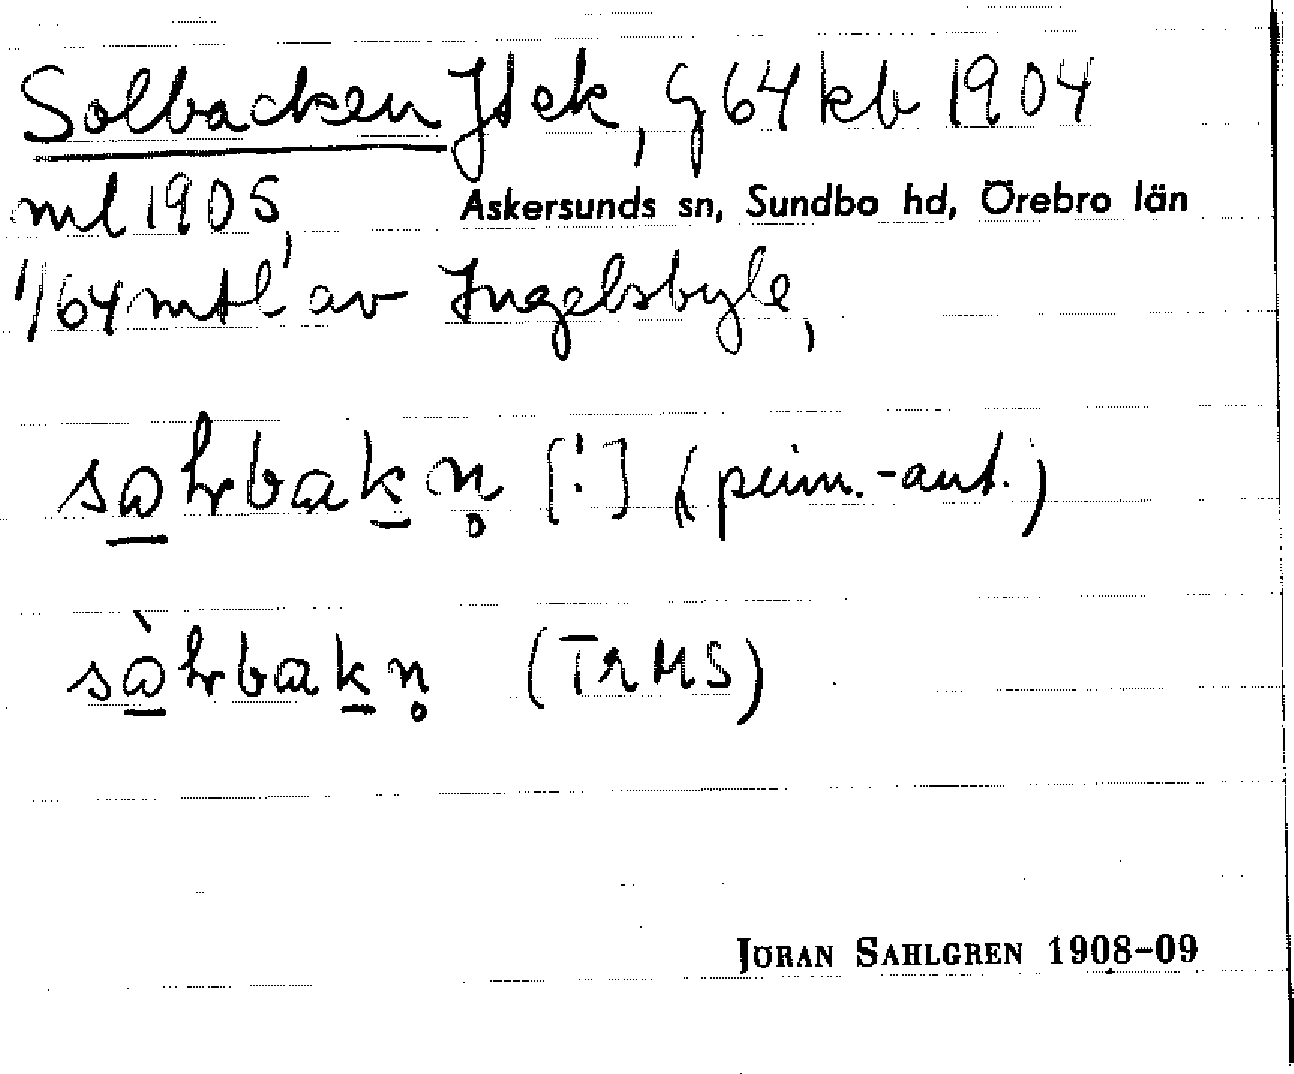 Solbacken Jdek, G 64 kb 1904
ml 1905, Askersunds sn, Sundbo hd, Örebro län
1/64 mtl av Ingelsbyle,
sa̲hrbak̲n̥ [!] (prim.-ant.)
sà̲hrbak̲n̥ (TRMS)
JÖRAN SAHLGREN 1908-09